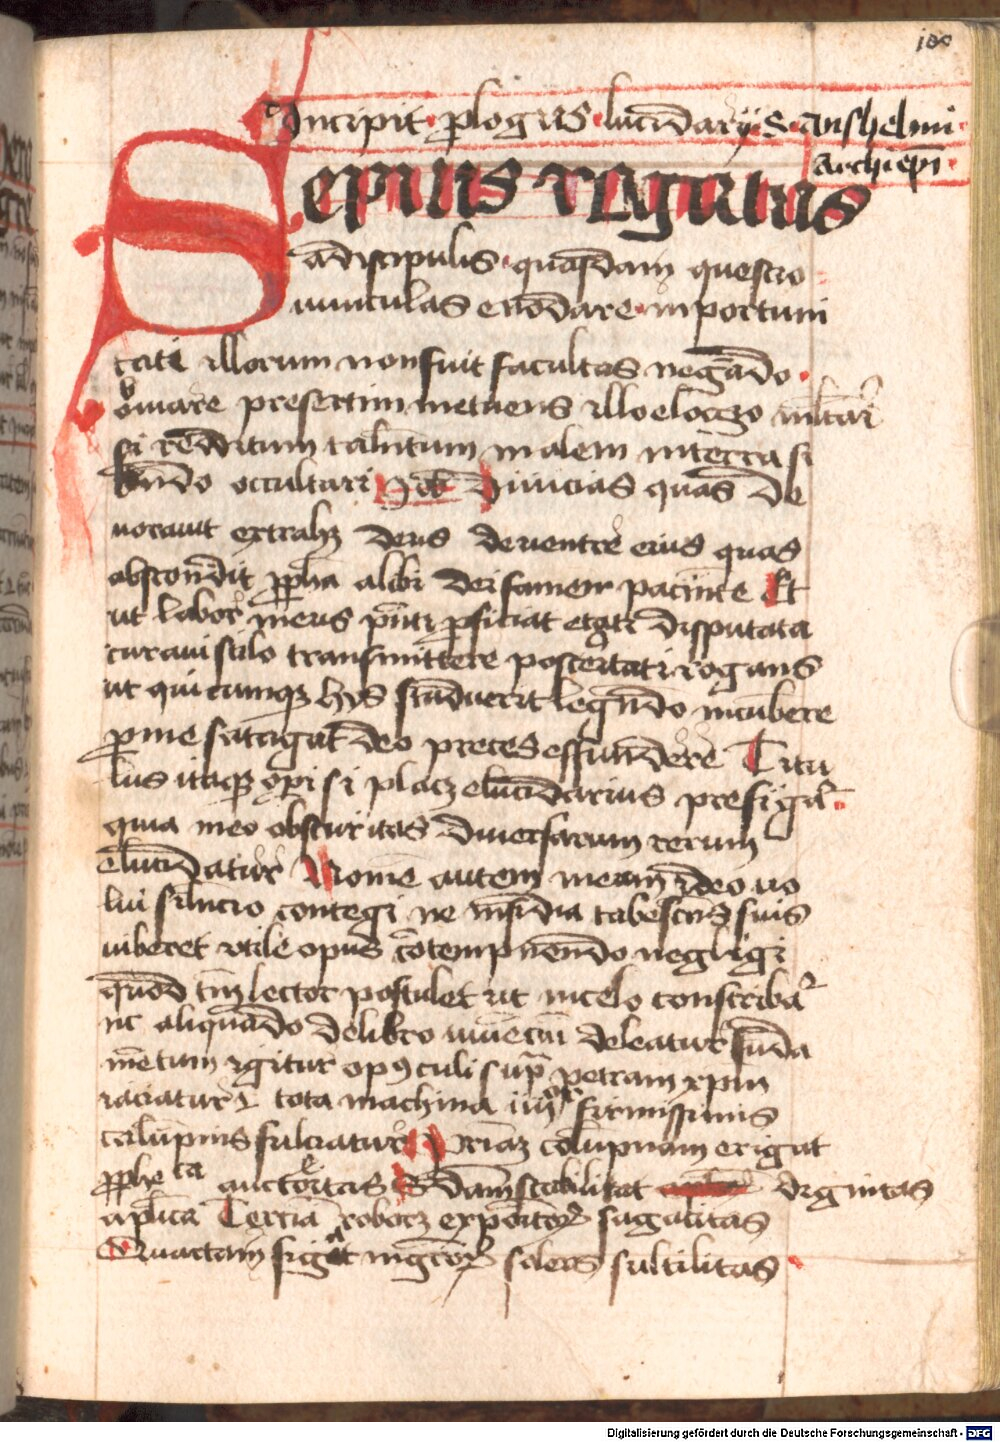 100
Incipit plogus lucidarij S. Anshelmi
Archiepi
Sepius rogatus
a discipulis quasdam questio
nunculas enodare inportuni
tati illorum non fuit facultas negando
obuiare presertim metuens illo elogio
si creditum talentum in
occultari diuicias quas de
uorauit extrahz deus de ventre eius quas
abscondit alibi dei famem Et
ut labor meus psficiat etati disputata
curaui stilo transmittere posteritati rogans
ut quicumqz hys studuerit legendo incubere
p me satagat deo preces effundere Titu
lus itaqz opi si placz elucidarius prefigat
quia in eo obscuritas diuersarum rerum
elucidatur Nomen autem meum ideo uo
lui silencio contegi ne inuidia tabescens suis
iuberet vtile opus cotempnendo negligi
quod tm lector postulet ut in celo conscribat
nc aliquando de libro viuencium deleatur funda
mentum igitur opusculi supra petram xpm
iaciatur et tota machina iiijor firmissimis
columpnis fulciatur Primam columpnam erigat
pphetica auctoritas Sedam stabilitat dignitas
aplica Terciam roboret expositorum sagacitas
Quartam figat magistrorum solers subtilitas
Digitalisierung gefördert durch die Deutsche Forschungsgemeinschaft - DFG